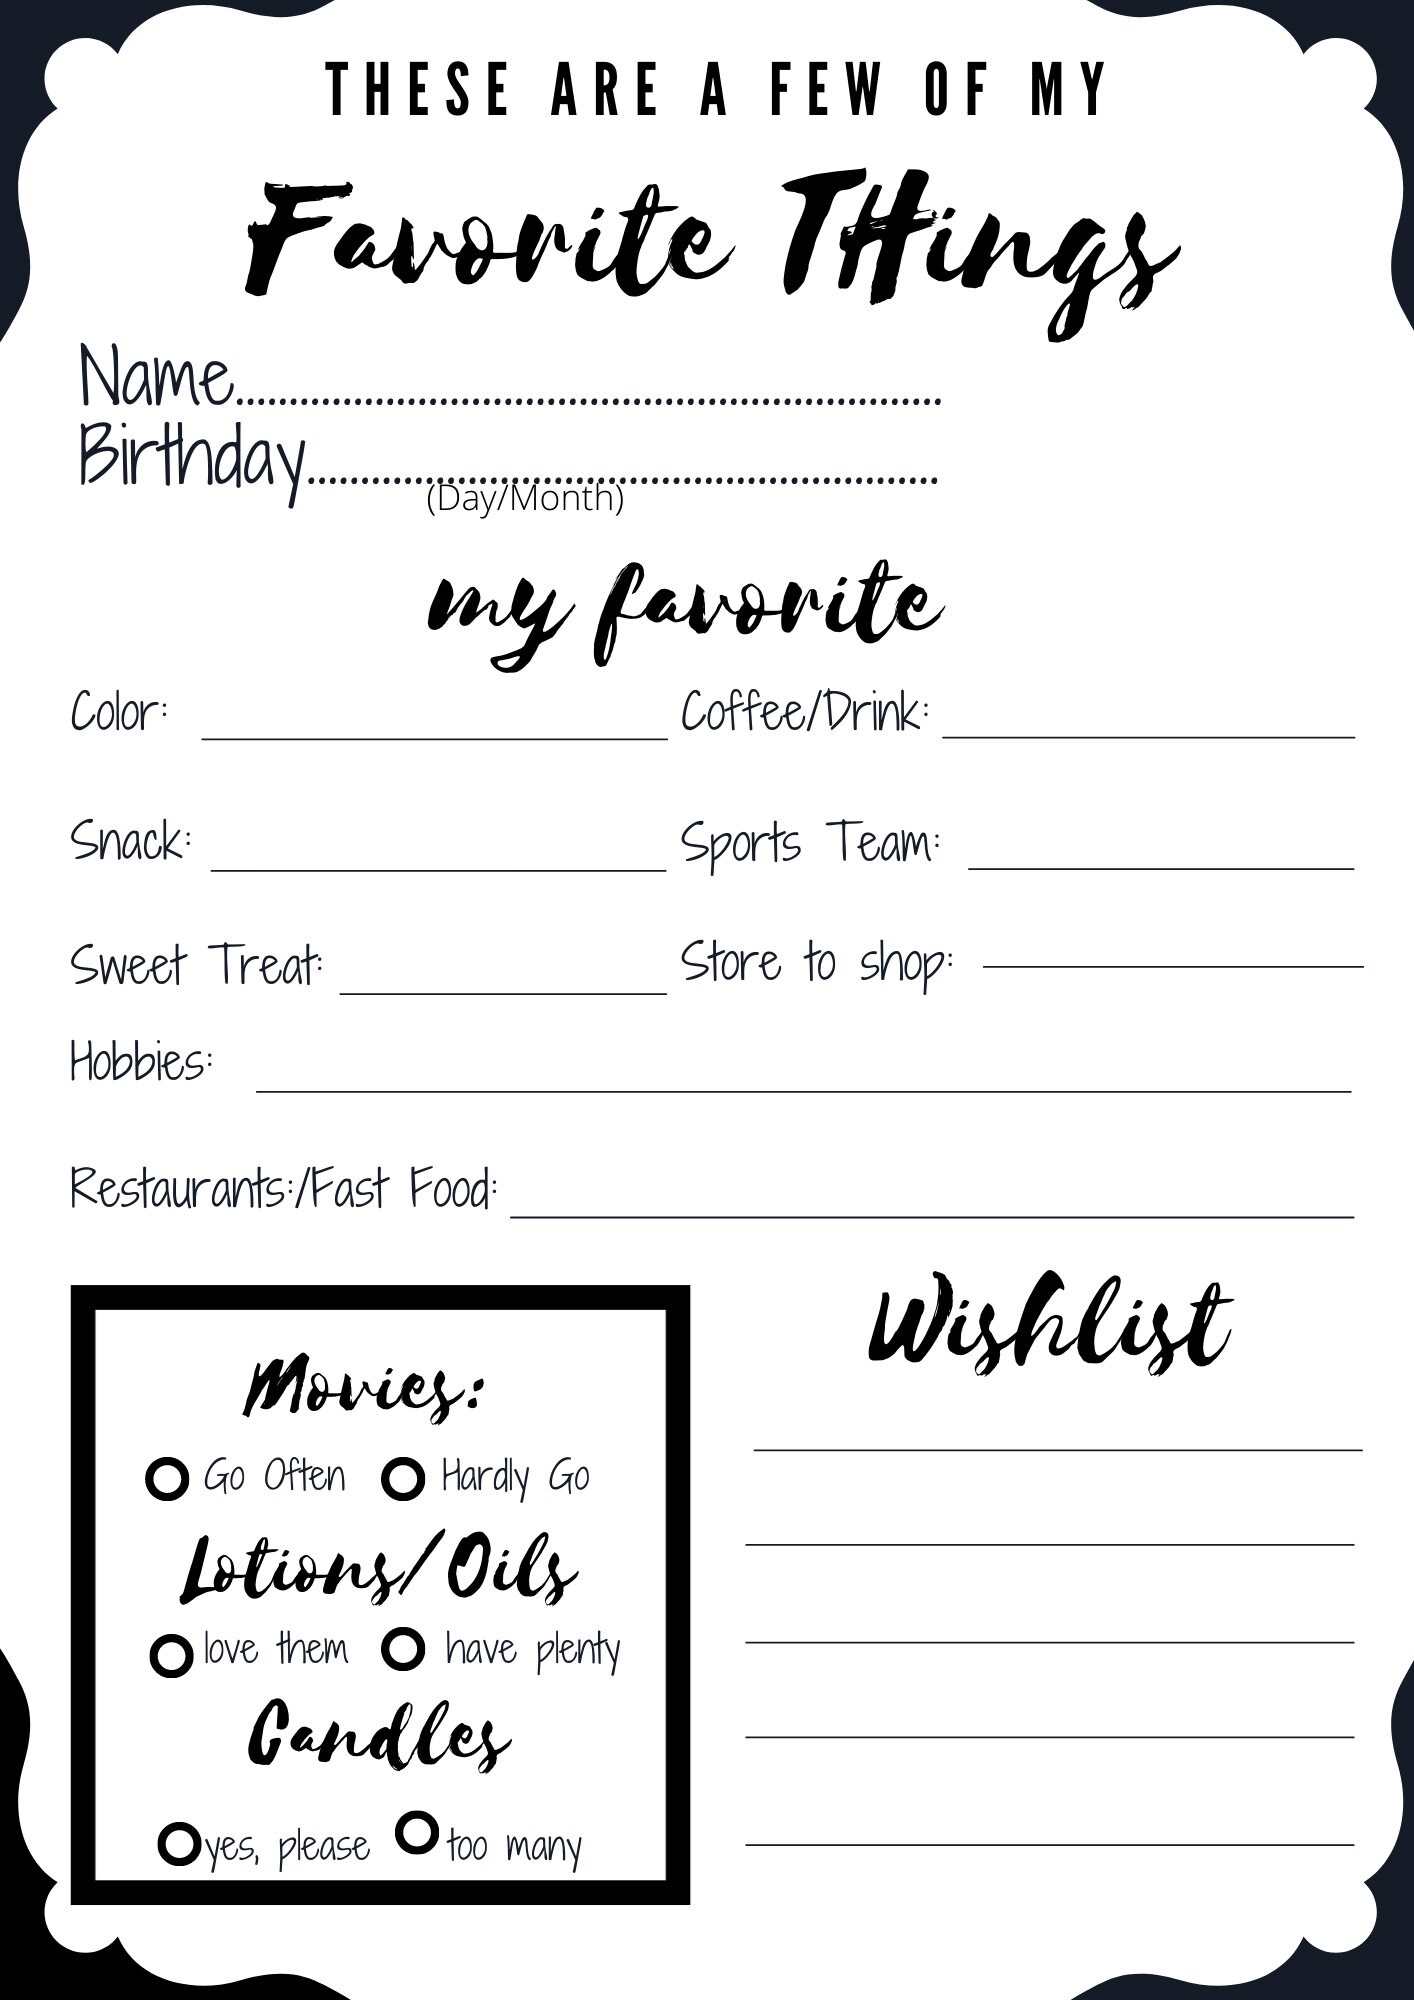 THESE ARE A FEW OF MY
Favorite THings
Name..........................................................
Birthday....................................................
(Day/Month)
my favorite
Color: Coffee/Drink:
Snack: Sports Team:
Sweet Treat: Store to shop:
Hobbies:
Restaurants:/Fast Food:
Wishlist
Movies:
Go Often Hardly Go
Lotions/Oils
love them have plenty
Candles
yes, please too many